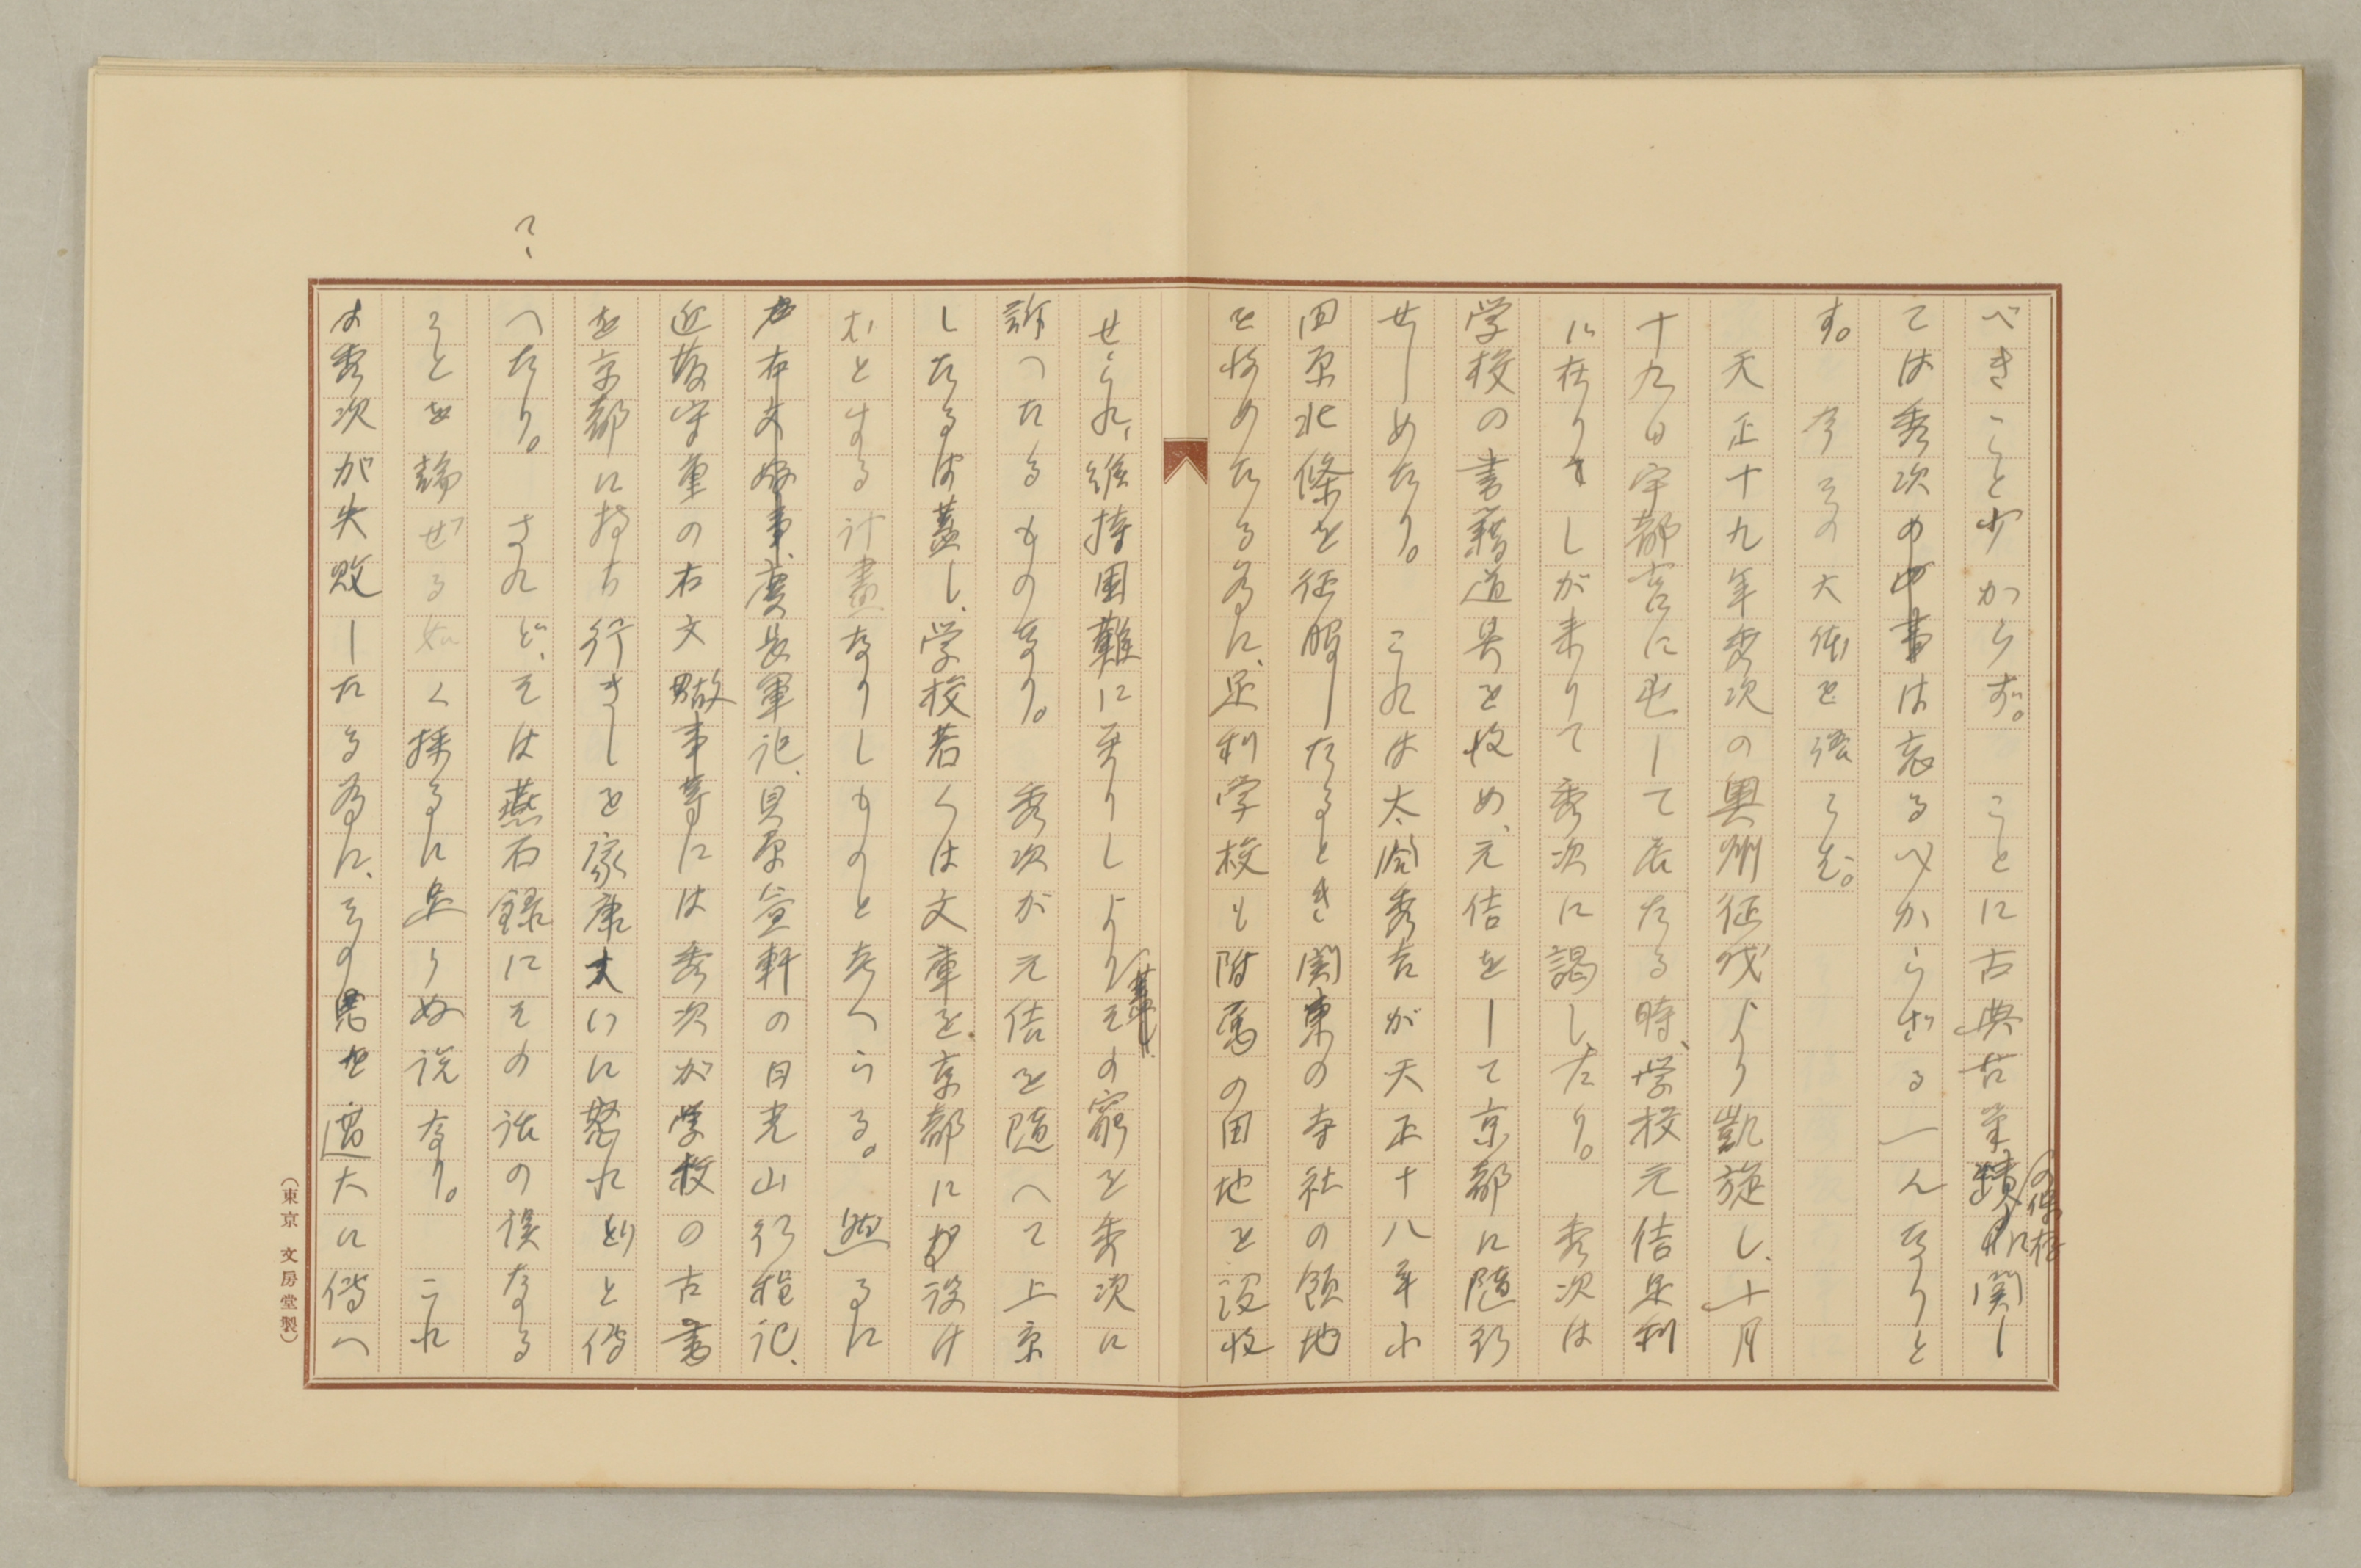 べきこと少からず。ことに古典古筆蹟の保存に関し
ては秀次の事は忘るべからざる一人なりと
す。今その大体を語らむ。
天正十九年秀次の奥州征伐より凱旋し、十月
十九日宇都宮に宿して居たる時、学校元佶足利
に在りしが来りて秀次に謁したり。秀次は
学校の書籍道具を収め、元佶をして京都に随行
せしめたり。これは太閤秀吉が天正十八年小
田原北條を征服したるとき関東の寺社の領地
を収めたる為に、足利学校も附属の田地を没収
せられ、維持困難に至りしより其の窮を秀次に
訴へたるものなり。秀次が元佶を随へて上京
したるは蓋し、学校若くは文庫を京都に設け
むとする計畫なりしものと考へらる。然るに
右文故事、慶長軍記、貝原益軒の日光山行程記、
近藤守重の右文故事等には秀次が学校の古書
を京都に持ち行きしを家康大いに怒れりと傳
へたり。されど、そは燕石録にその話の誤なる
ことを論ぜる如く採るに足らぬ説なり。これ
は秀次が失敗したる為に、その悪を過大に傳へ
(東京 文房堂製)